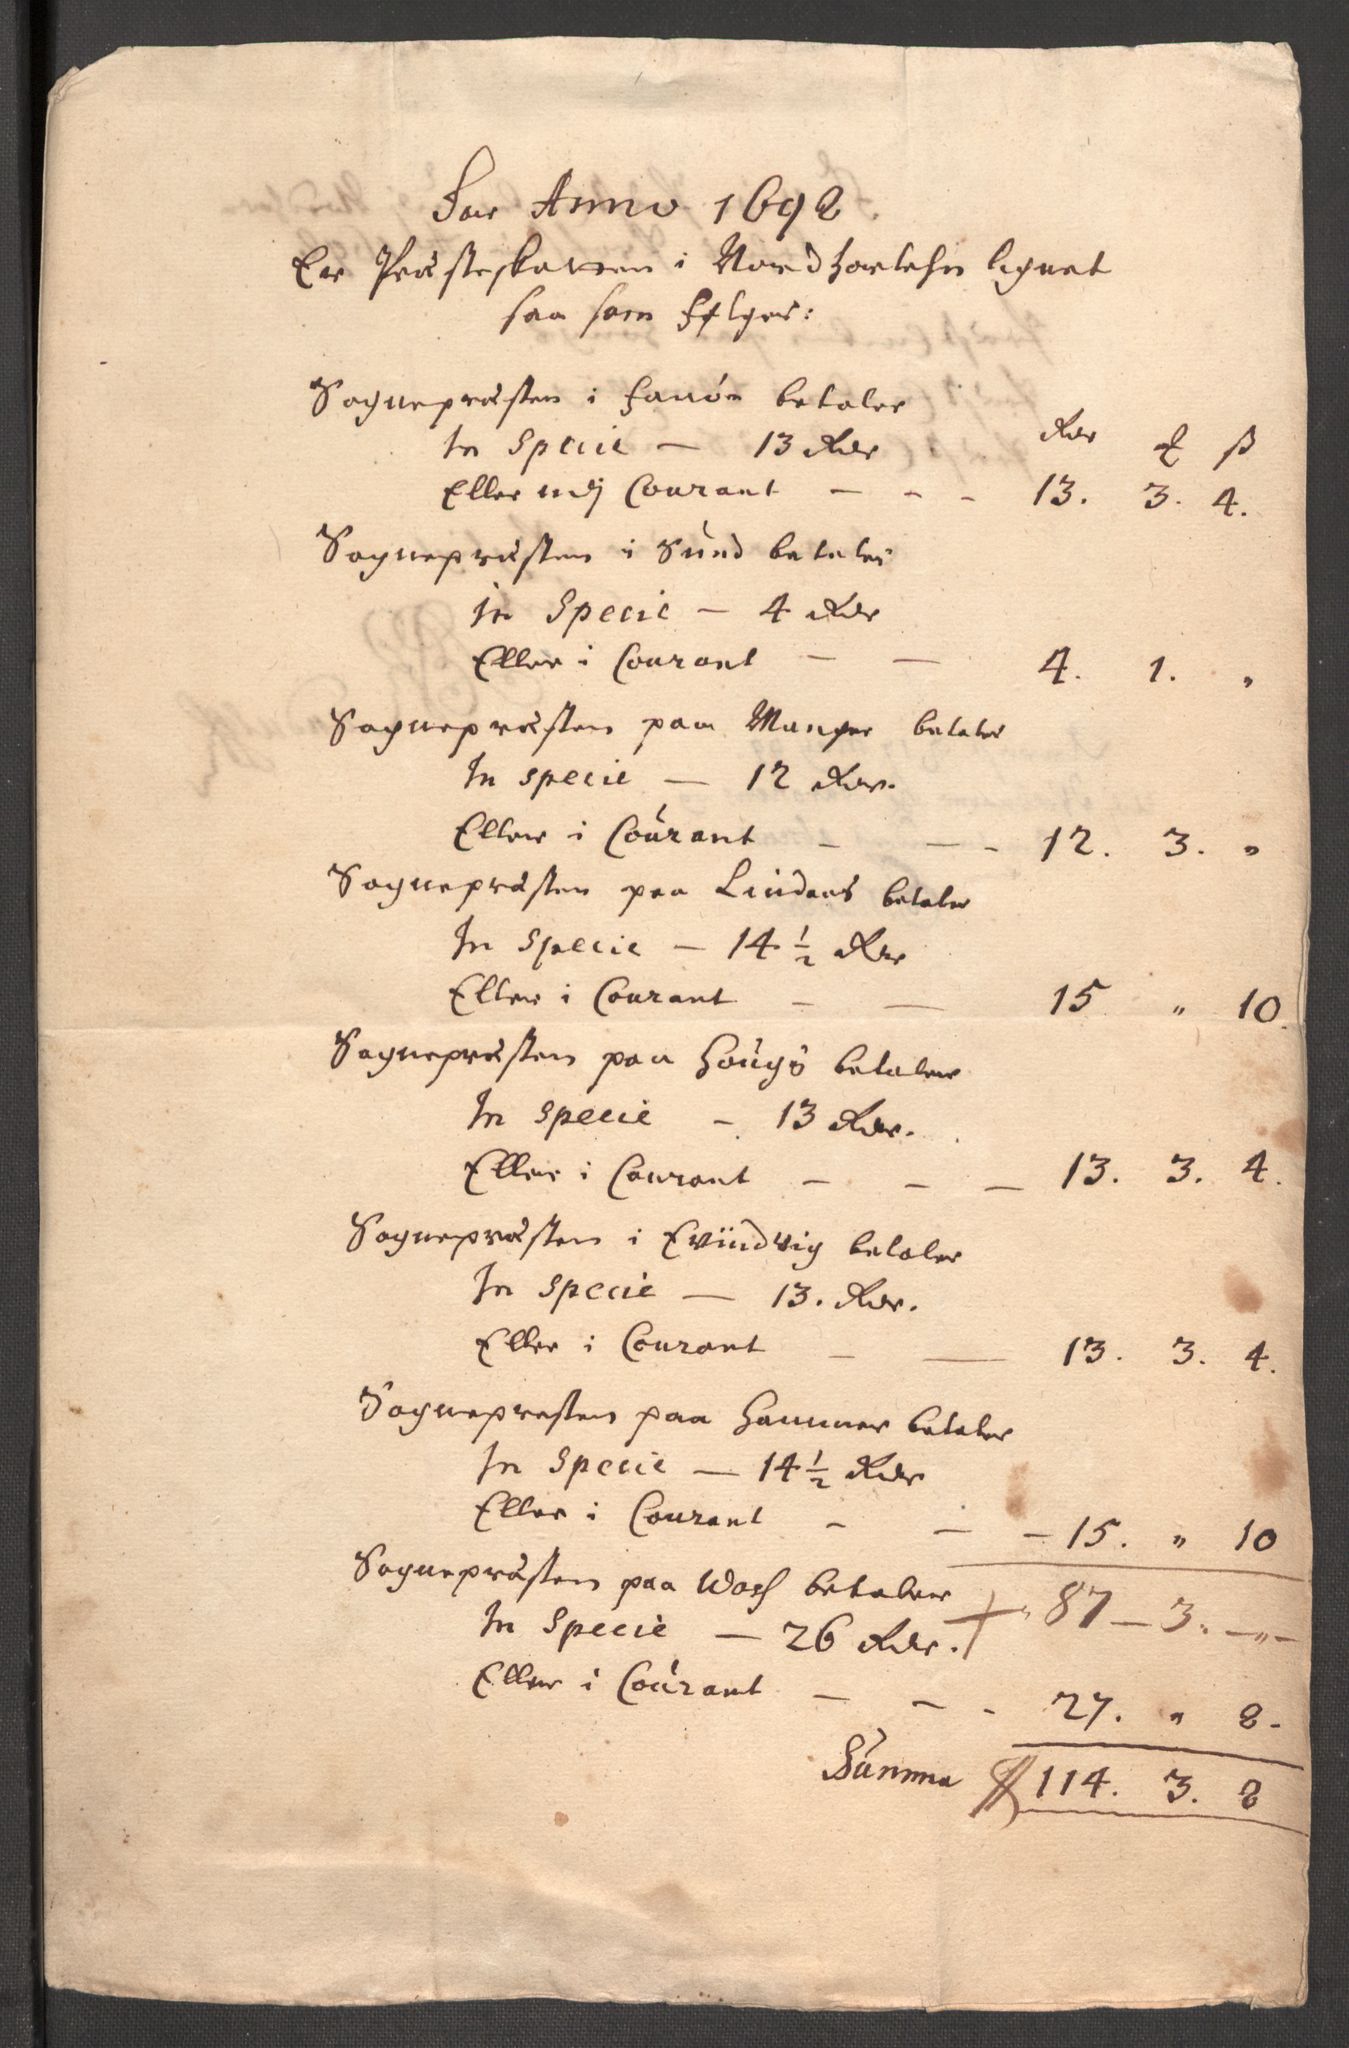 For Anno 1692.
Er Præsteskatten i Nordhorlehn lignet
saa som følger:
Sognepræsten i Fanöe betaler
In Specie — 13 Rdr
Rdr ₰ ß
Eller udj Courant - - - 13. 3. 4.
Sognepræsten i Sund betaler
In Specie — 4 Rdr
Eller i Courant — — 4. 1. "
Sognepræsten paa Manger betaler
In specie — 12 Rdr.
Eller i Courant - - - 12. 3. "
Sognepræsten paa Lindaas betaler
In Specie — 14 ½ Rdr
Eller i Courant - — 15 " 10.
Sognepræsten paa Hougs betaler
In Specie - 13 Rdr.
Eller i Courant — - — 13. 3. 4.
Sognepræsten i Evindvig betaler
In Specie — 13. Rdr.
Eller i Courant - — 13. 3. 4.
Sognepresten paa Hammer betaler
In Specie — 14 ½ Rdr
Eller i Courant - — - 15. " 10
Sognepræsten paa Wos betaler
87 — 3. — " —
In Specie — 26 Rdr.
Eller i Courant — - - 27. " 8.
Summa 114. 3. 8